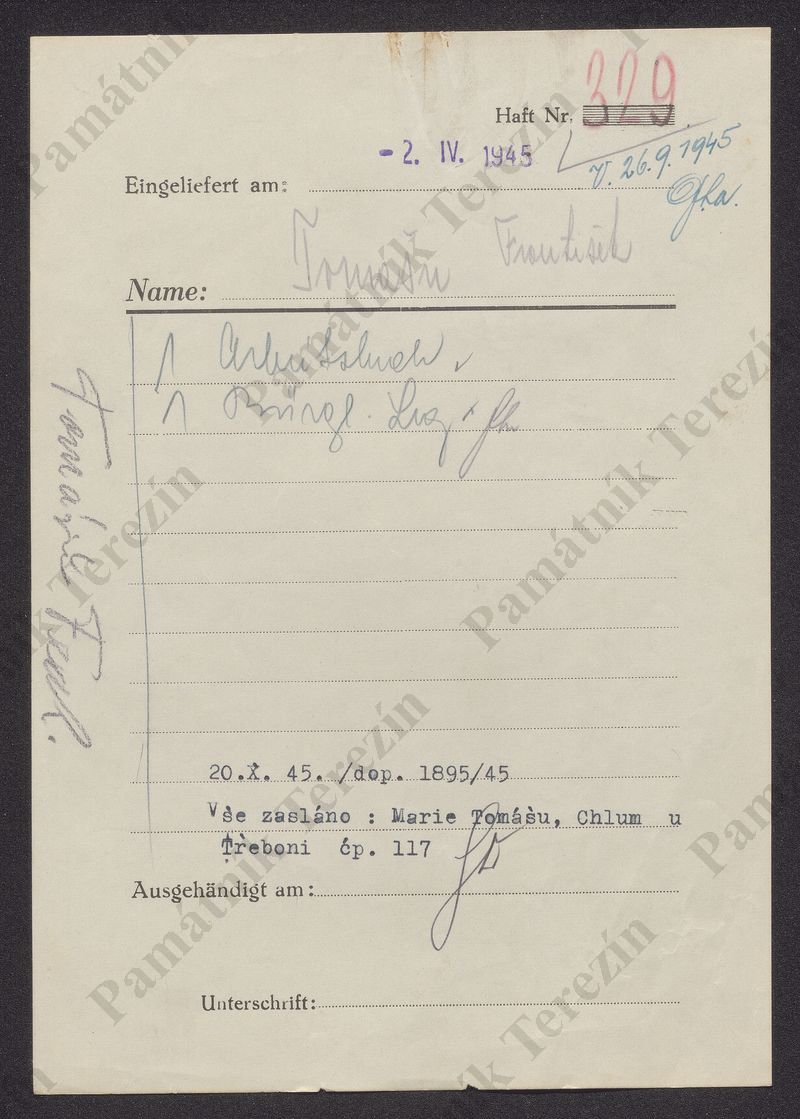 Haft Nr. 329
- 2. IV. 1945
V. 26.9.1945
Eingeliefert am:
Name: Tomašu František
1 Arbeitsbuch
1 Bürgl. Leg
20.X. 45. /dop. 1895/45
Vše zasláno : Marie Tomášu, Chlum u
Třeboni čp. 117
Ausgehändigt am:
Unterschrift:
Tomášů Frant.
Památník Terezín